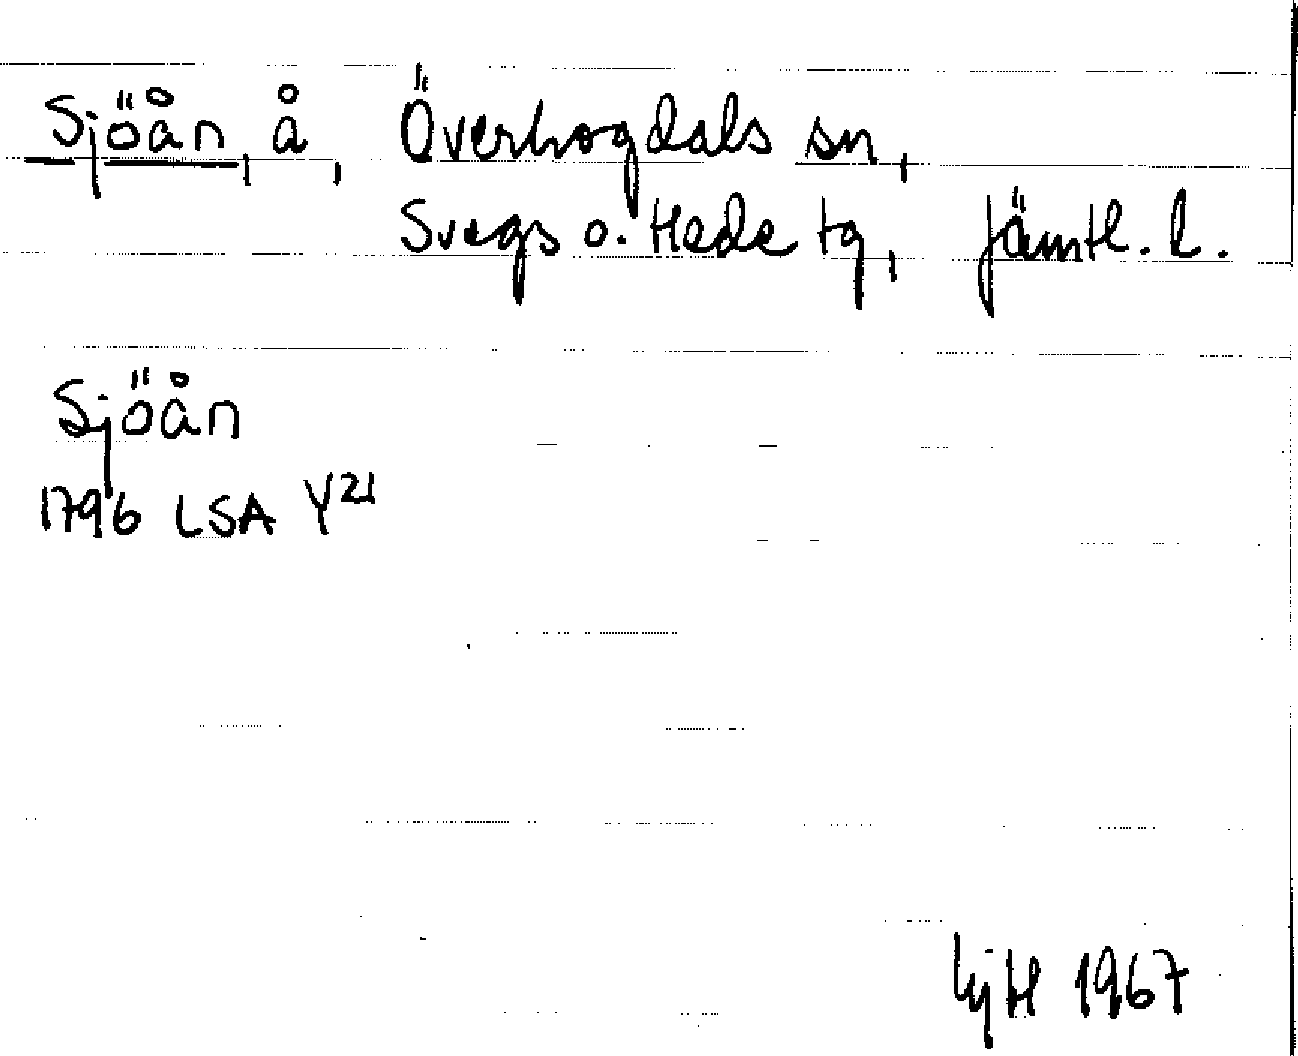 Sjöån, å, Överhogdals sn,
Svegs o. Hede tg, Jämtl. l.
Sjöån
1796 LSA Y21
1967